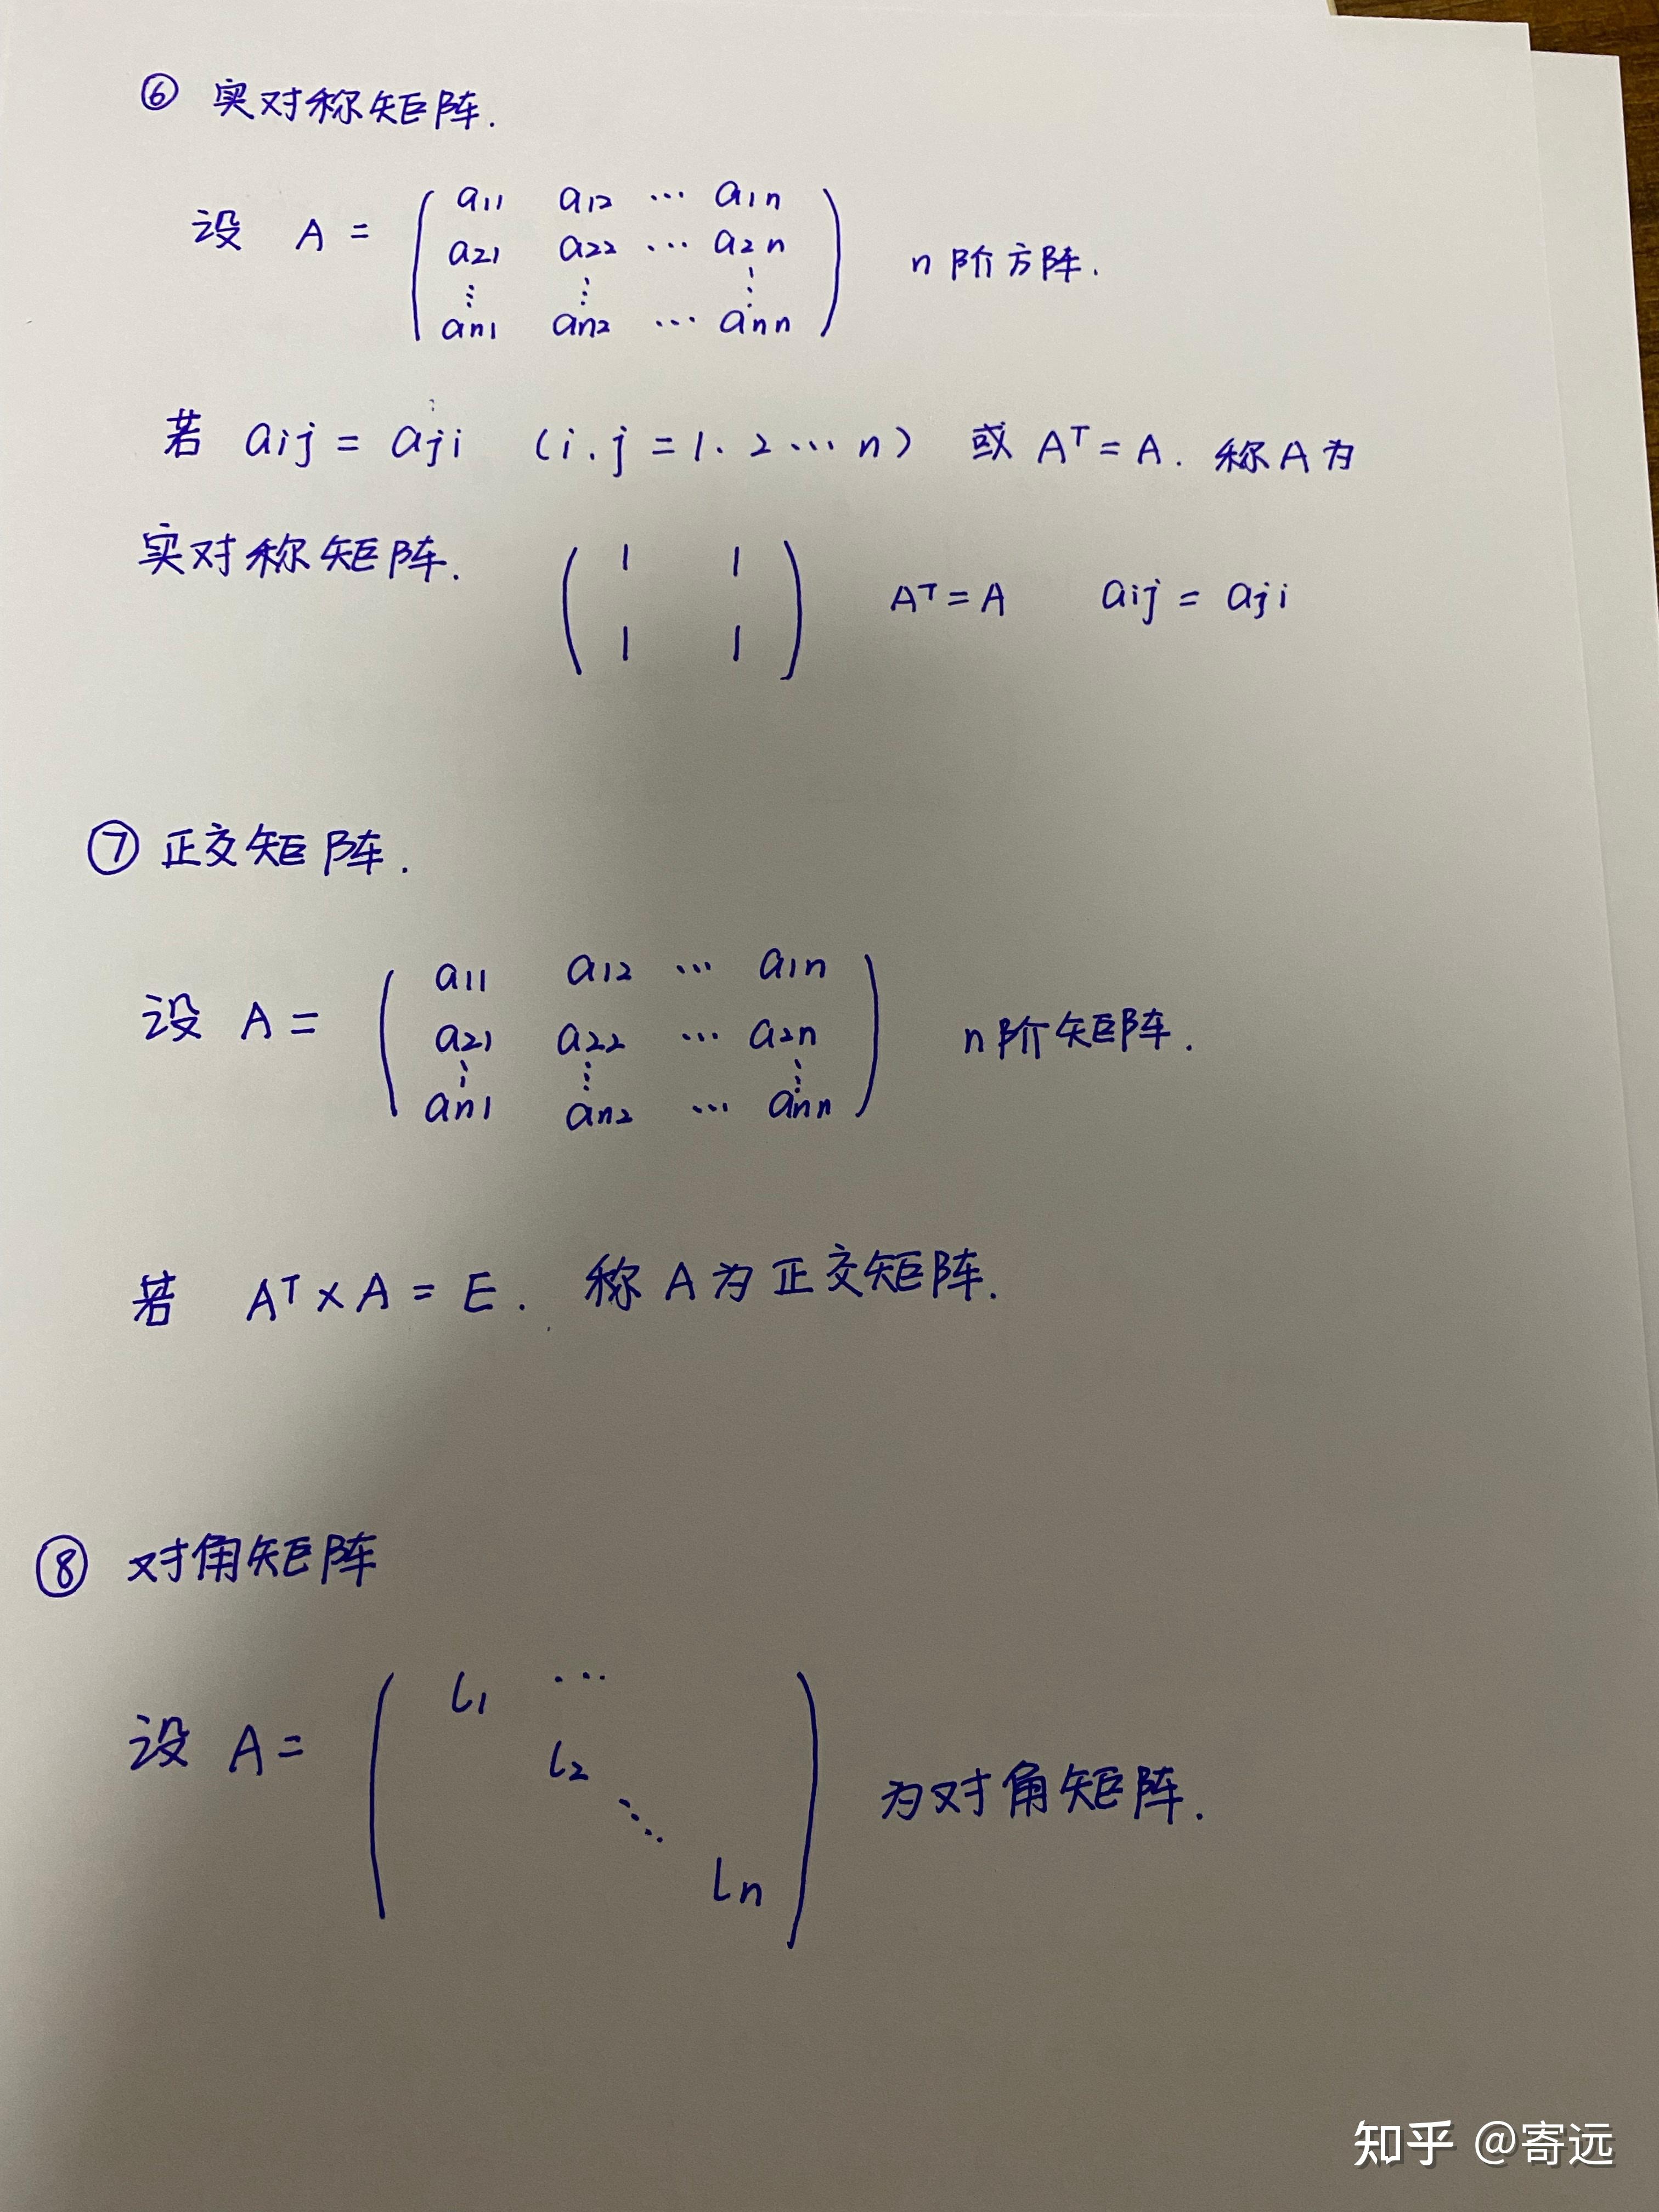 ⑥ 实对称矩阵.
设 A = ( a11 a12 … a1n
a21 a22 … a2n
⋮ ⋮ ⋮
an1 an2 … ann ) n 阶方阵.
若 aij = aji (i.j = 1. 2 … n) 或 Aᵀ = A. 称A为
实对称矩阵. ( 1 1
1 1 ) Aᵀ = A aij = aji
⑦ 正交矩阵.
设 A = ( a11 a12 … a1n
a21 a22 … a2n
⋮ ⋮ ⋮
an1 an2 … ann ) n 阶矩阵.
若 Aᵀ × A = E. 称 A 为正交矩阵.
⑧ 对角矩阵
设 A = ( l1 …
l2
⋱
ln ) 为对角矩阵.
知乎 @寄远